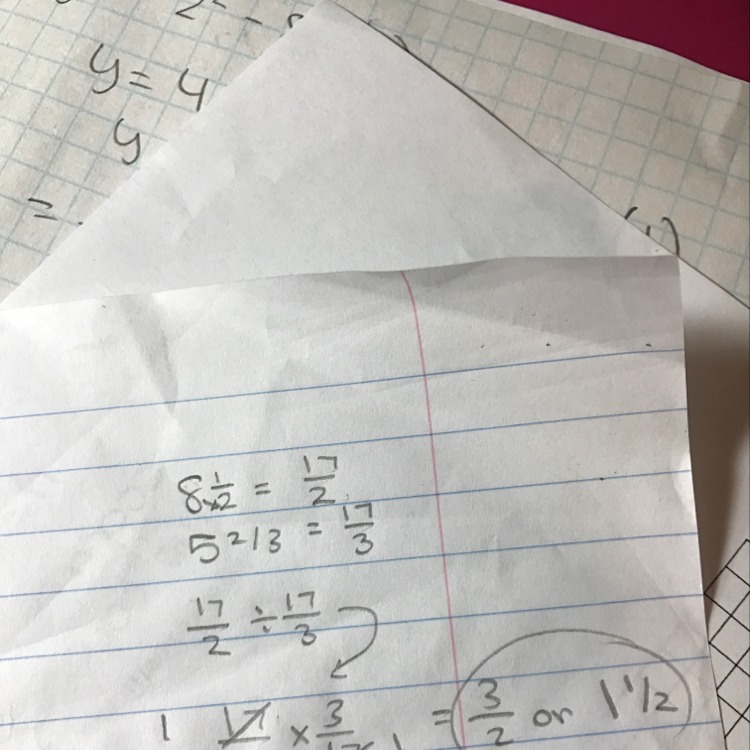 y = 4
y
=
8 1/2 = 17/2
5 2/3 = 17/3
17/2 ÷ 17/3
1 17 × 3 = 3/2 or 1 1/2